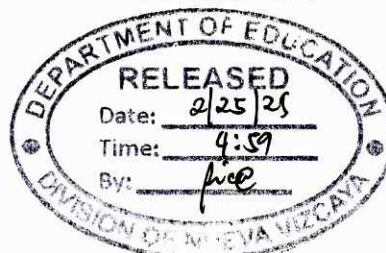 DEPARTMENT OF EDUCATION
RELEASED
Date: 2/25/25
Time: 4:59
By:
DIVISION OF NUEVA VIZCAYA